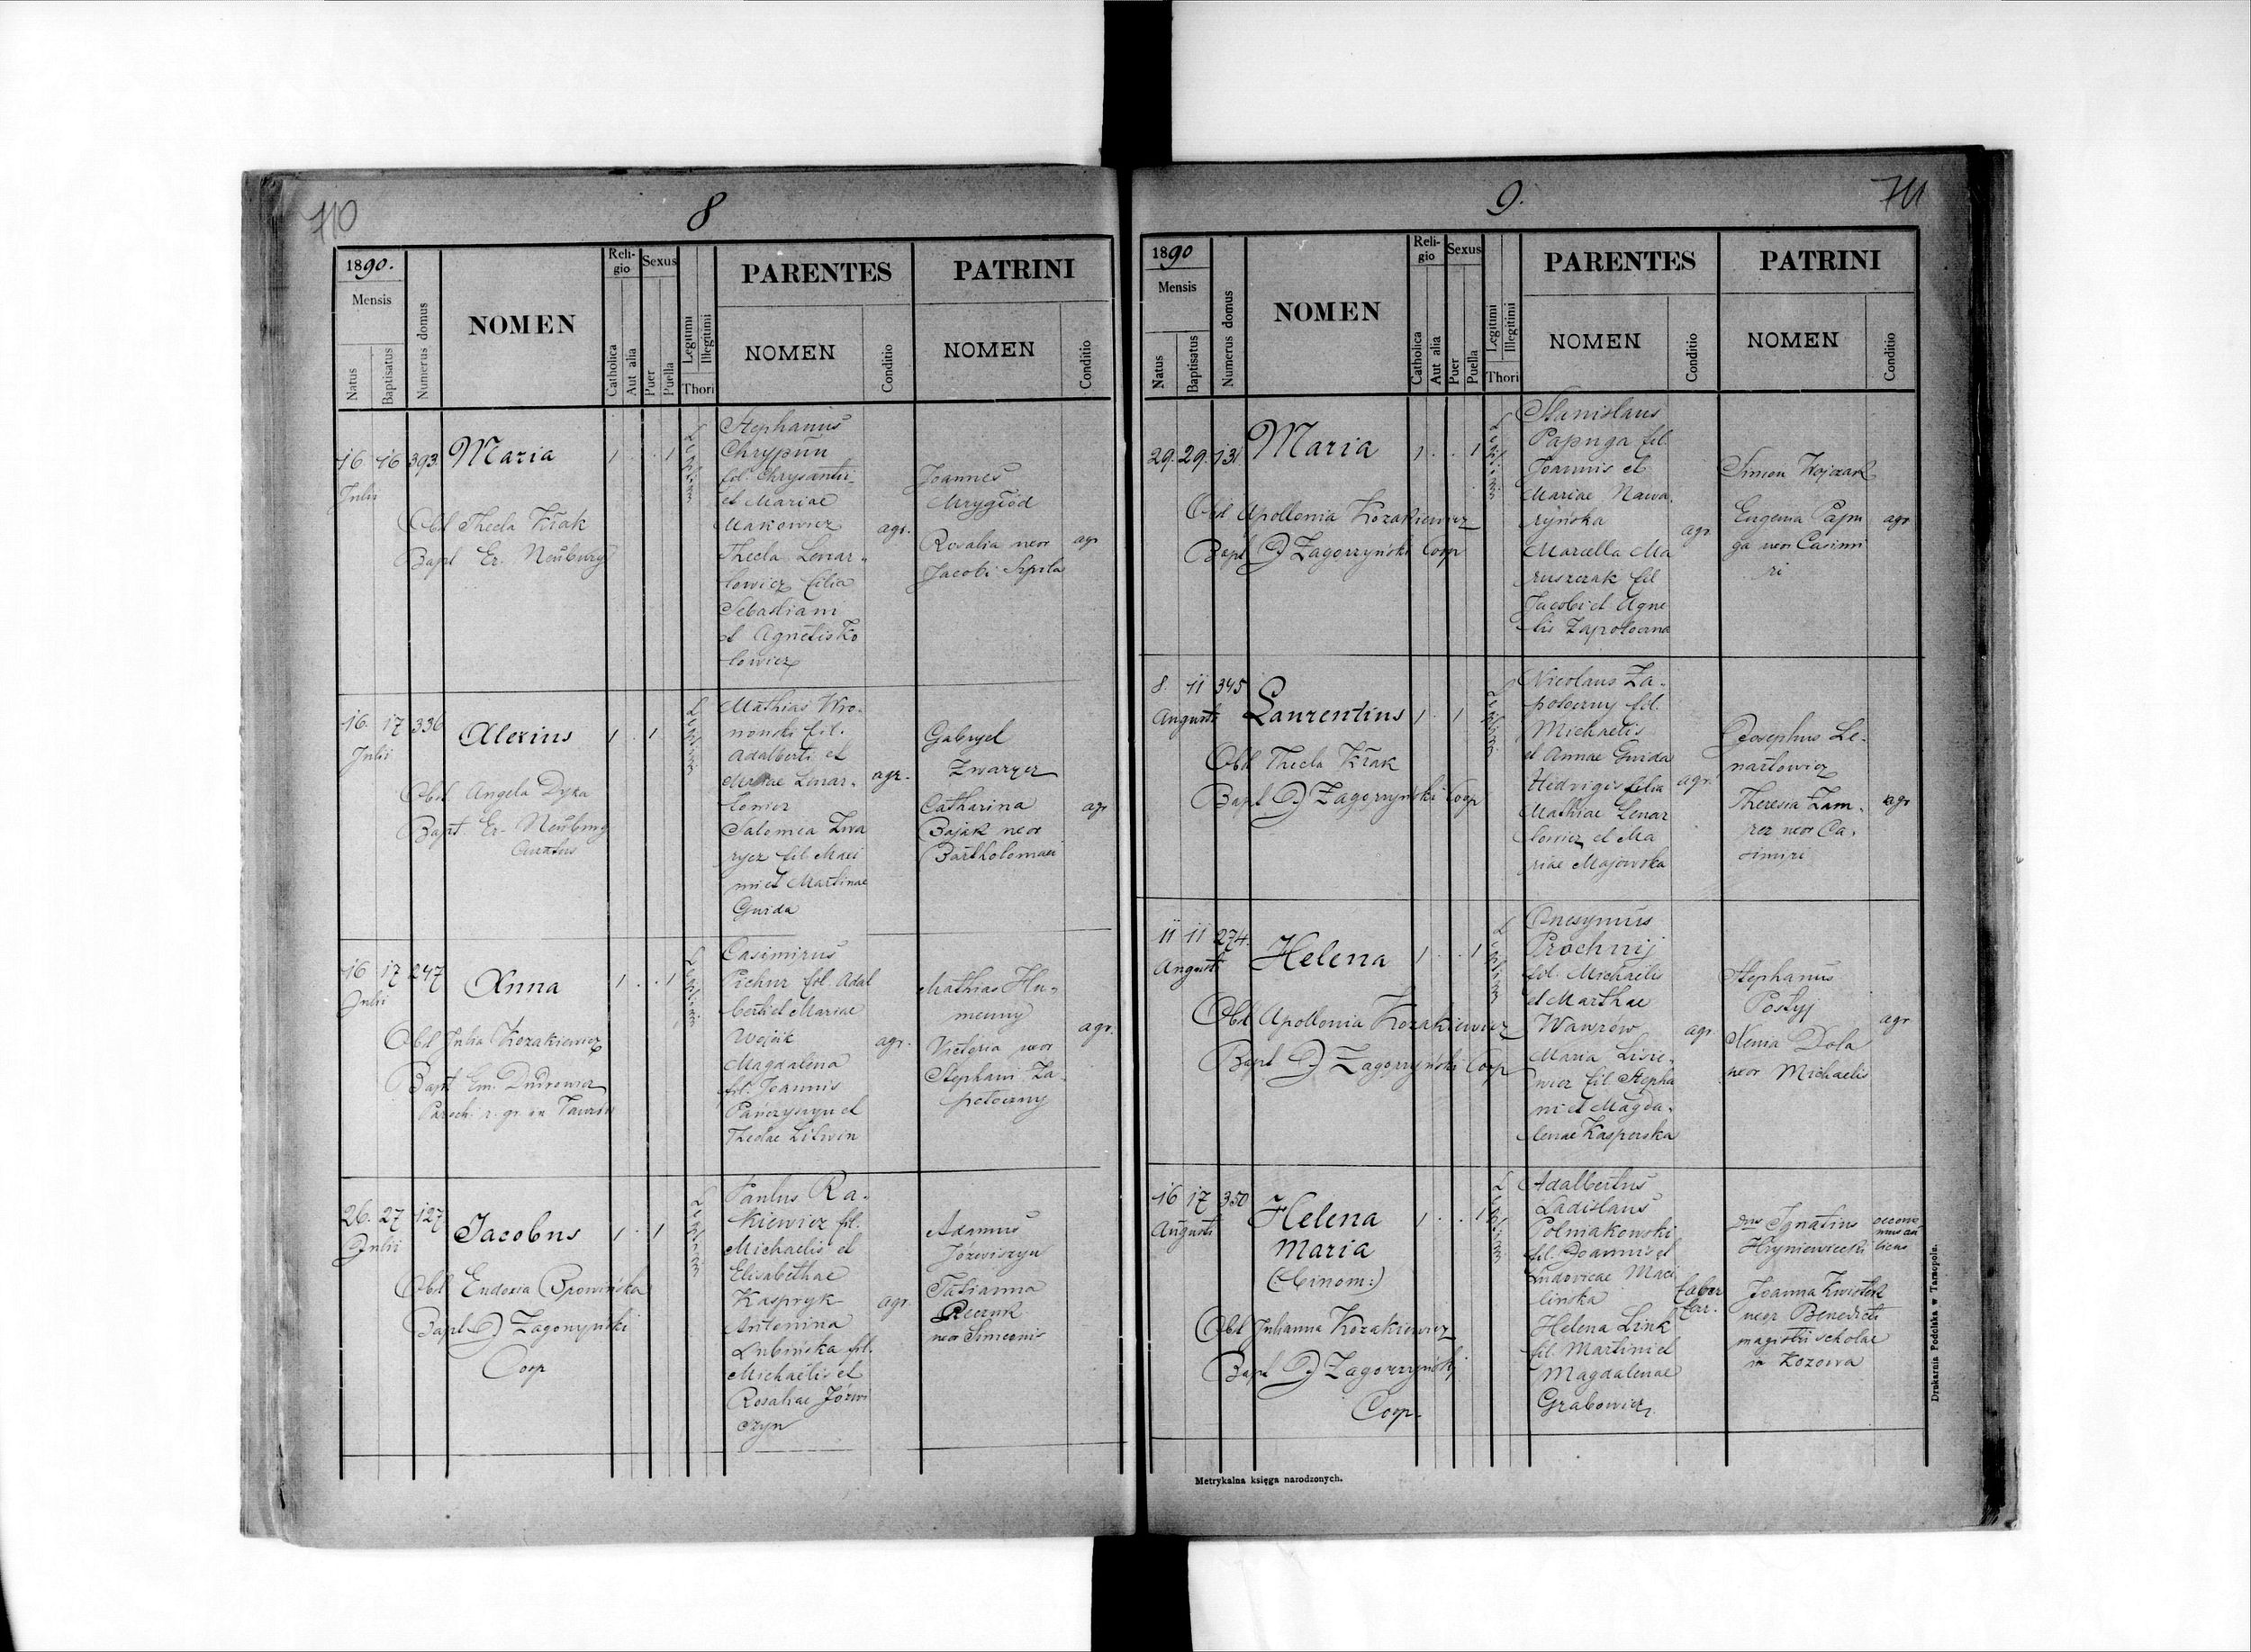 710
8
1890.
Mensis
Natus
Baptisatus
Numerus domus
NOMEN
Reli-
gio
Catholica
Aut alia
Sexus
Puer
Puella
Legitimi
Illegitimi
Thori
PARENTES
NOMEN
Conditio
PATRINI
NOMEN
Conditio
16 16 393. Maria 1 . . 1
Julii
Obst Thecla Krak
Bapt Er. Neuburg
Stephanus
Chrypun
fil. Chrysanti
et Mariae
Makowicz
Thecla Lenar-
towicz filia
Sebastiani
et Agnetis Ko
towicz
agr.
Joannes
Mrygłód
Rosalia uxor
Jacobi Szpila
agr
16. 17 336 Alexius 1 . 1
Julii
Obst Angela Dyka
Bapt. Er. Neuburg
Curatus
Mathias Wro-
nowski fil.
Adalberti et
Mariae Lenar-
towicz
Salomea Zwa
rycz fil Maxi
mi et Martinae
Guida
agr.
Gabryel
Zwarycz
Catharina
Bajak uxor
Bartholomaei
agr
16 17 247 Anna 1 . . 1
Julii
Obst Julia Kozakiewicz
Bapt Em. Dudrowicz
Paroch. r. gr. in
Casimirus
Pichur fil. Adal
berti et Mariae
Wojcik
Magdalena
fil. Joannis
Panczyszyn et
Theclae Litwin
agr.
Mathias Hu-
menny
Victoria uxor
Stephani Za
potoczny
agr.
26. 27 127 Jacobus 1 . 1
Julii
Obst Eudoxia
Bapt D Zagorzyński
Coop
Paulus Ra-
kiewicz fil.
Michaelis et
Elisabethae
Kaspryk
Antonina
Lubińska fil.
Michaelis et
Rosaliae Józwi
szyn
agr.
Adamus
Józwiszyn
Tatianna
uxor Simeonis
9.
711
1890
Mensis
Natus
Baptisatus
Numerus domus
NOMEN
Reli-
gio
Catholica
Aut alia
Sexus
Puer
Puella
Legitimi
Illegitimi
Thori
PARENTES
NOMEN
Conditio
PATRINI
NOMEN
Conditio
29. 29. 131 Maria 1 . . 1
Obst Apollonia Kozakiewicz
Bapt D Zagorzyński Coop
Stanislaus
Papuga fil.
Joannis et
Mariae Nawa
ryńska
Marcella Ma
ruszczak fil
Jacobi et Agne
tis Zapotoczna
agr
Simon Kojzak
Eugenia Papu
ga uxor Casimi
ri
agr
8. 11 345 Laurentius 1 . 1
Augusti
Obst Thecla Krak
Bapt D Zagorzyński Coop
Nicolaus Za-
potoczny fil.
Michaelis
et Annae Guida
Hedvigis filia
Mathiae Lenar
towicz et Ma
riae Majowska
agr.
Josephus Le-
nartowicz
Theresia Zam-
rez uxor Ca-
simiri
agr
11 11 274. Helena 1 . . 1
Augusti
Obst Apollonia Kozakiewicz
Bapt D Zagorzyński Coop
Onesymus
Prochnij
fil. Michaelis
et Marthae
Wawrów
Maria Lisie-
wicz fil. Stepha
ni et Magda-
lenae Kasperska
agr.
Stephanus
Postyj
Xenia Dola
uxor Michaelis
agr
16 17 350 Helena 1 . . 1
Augusti
Maria
(:binom:)
Obst Julianna Kozakiewicz
Bapt D Zagorzyński
Coop.
Adalbertus
Ladislaus
Polniakowski
fil. Joannis et
Ludovicae Maci
linska
Helena Link
fil. Martini et
Magdalenae
Grabowicz
faber
ferr.
Dnus Ignatius
Hryniewiecki
Joanna Kwistek
uxor Benedicti
magistri scholae
in Kozowa
Metrykalna księga narodzonych.
Drukarnia Podolska w Tarnopolu.